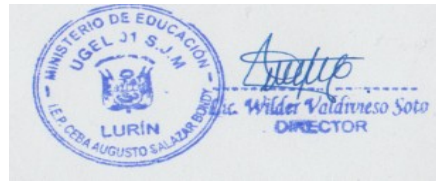 MINISTERIO DE EDUCACIÓN
UGEL 01 S.J.M
LURÍN
I.E.P. CEBA AUGUSTO SALAZAR BONDY
Lic. Wilder Valdivieso Soto
DIRECTOR